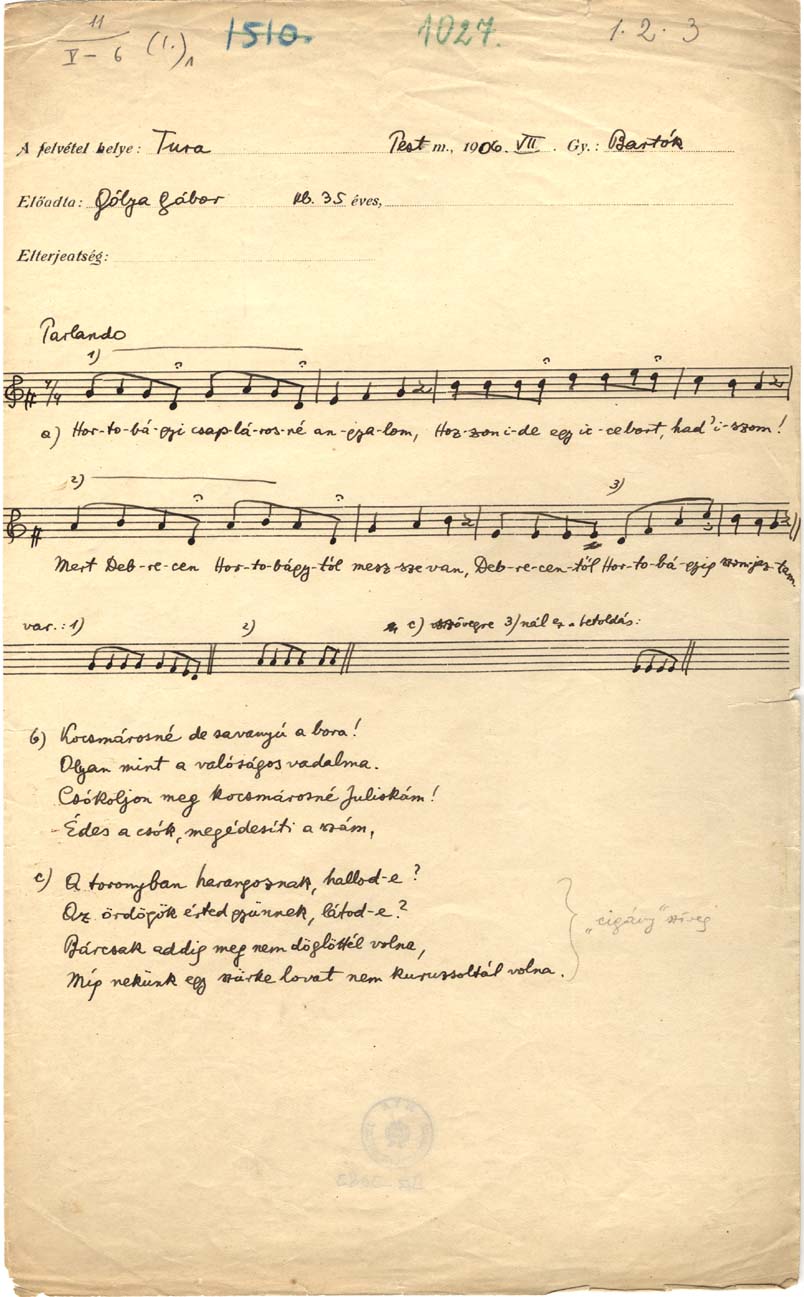 11
V – 6 (1.)1 1510. 1027. 1. 2. 3
A felvétel helye: Tura Pest m., 1906. VII. Gy.: Bartók
Előadta: Gólya Gábor kb. 35 éves,
Elterjedtség:
Parlando
1)
7/4
a) Hor-to-bá-gyi csap-lá-ros-né an-gya-lom, Hoz-zon i-de egy ic-ce bort, had' i-szom!
2) 3)
Mert Deb-re-cen Hor-to-bágy-tól mesz-sze van, Deb-re-cen-től Hor-to-bá-gyig szom-jaz-tam
var.: 1) 2) c) szövegre 3)nál ez a betoldás:
b) Kocsmárosné de savanyú a bora!
Olyan mint a valóságos vadalma.
Csókoljon meg kocsmárosné Juliskám!
Édes a csók, megédesíti a szám,
c) A toronyban harangoznak, hallod-e?
Az ördögök érted gyünnek, látod-e?
Bárcsak addig meg nem döglöttél volna,
Míg nekünk egy szürke lovat nem kuruzsoltál volna.
„cigány" szöveg